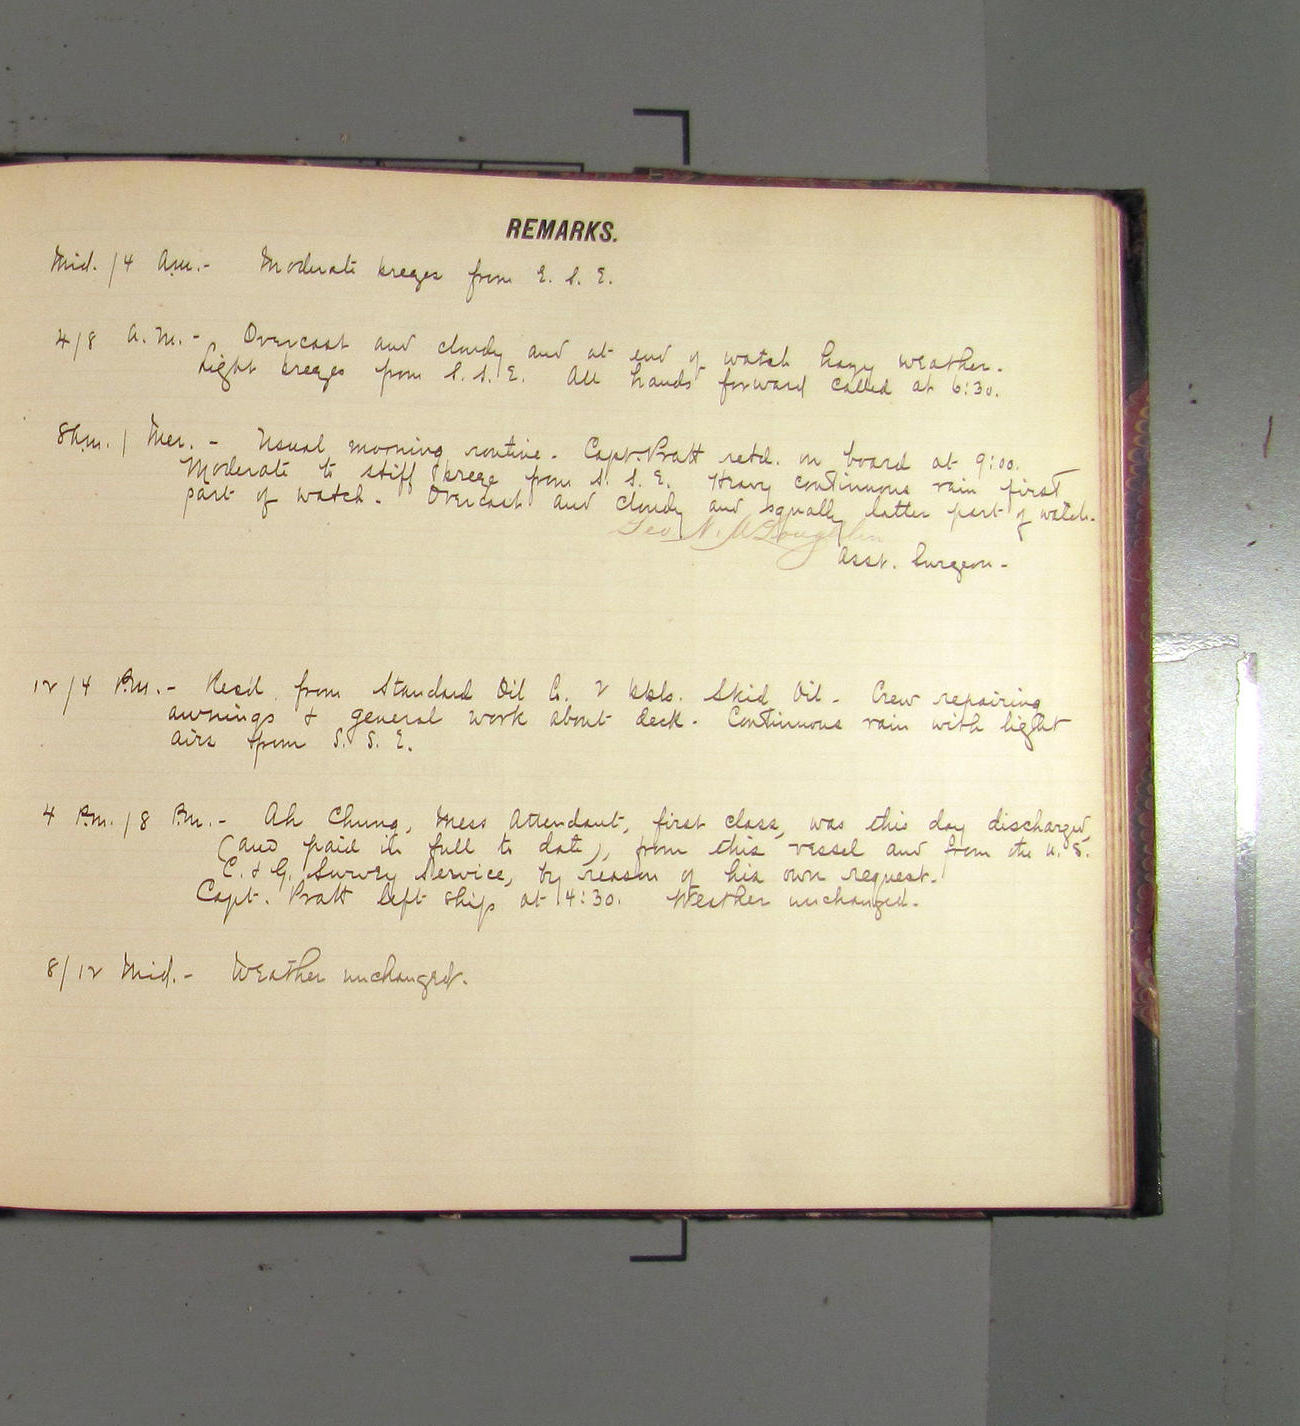 REMARKS.
Mid. / 4 A.M. - Moderate breezes from E. S. E.
4/8 A.M. - Overcast and cloudy and at end of watch hazy weather.
Light breezes from S. S. E. All hands forward called at 6:30.
8 A.M. / Mer. - Usual morning routine. Capt. Pratt retd. on board at 9:00.
Moderate to stiff breeze from S. S. E. Heavy continuous rain first
part of watch. Overcast and cloudy and squally latter part of watch.
Geo. N. McLoughlin
Asst. Surgeon -
12/4 P.M. - Recd. from Standard Oil Co. 2 bbls. Skid Oil - Crew repairing
awnings & general work about deck. Continuous rain with light
airs from S. S. E.
4 P.M. / 8 P.M. - Ah Chung, Mess Attendant, first class, was this day discharged,
(and paid in full to date), from this vessel and from the U. S.
C. & G. Survey Service, by reason of his own request.
Capt. Pratt left ship at 4:30. Weather unchanged.
8/12 Mid. - Weather unchanged.